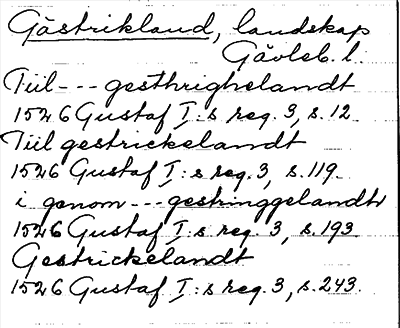 Gästrikland, landskap
Gävleb. l.
Till --- gesthrighelandt
1526 Gustaf I:s reg. 3, s. 12.
Till gestrickelandt
1526 Gustaf I:s reg. 3, s. 119.
i genom --- gestringgelandtt
1526 Gustaf I:s reg. 3, s. 193.
Gestrickelandt
1526 Gustaf I:s reg. 3, s. 243.